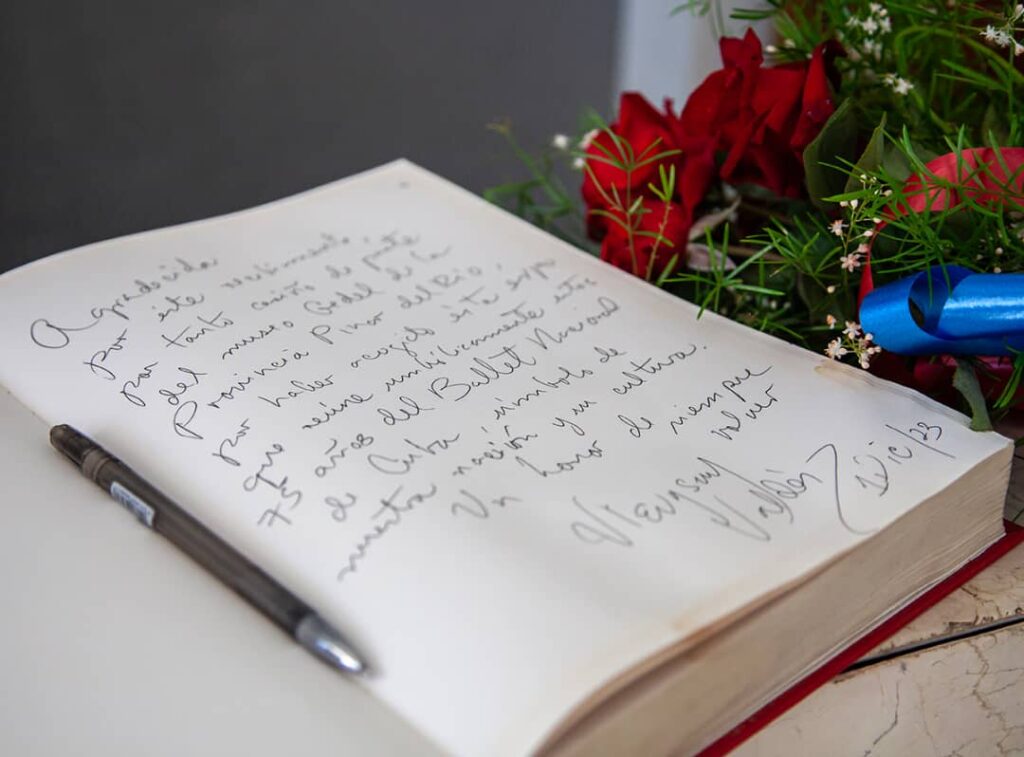 Agradecida
por este recibimiento
por tanto cariño de parte
del museo de la
Provincia Pinar del Rio,
por haber acogido esta expo
que reune simbólicamente estos
75 años del Ballet Nacional
de Cuba símbolo de
nuestra nación y su cultura.
Un honor de siempre
volver
Viengsay
Valdés
1 Dic/23